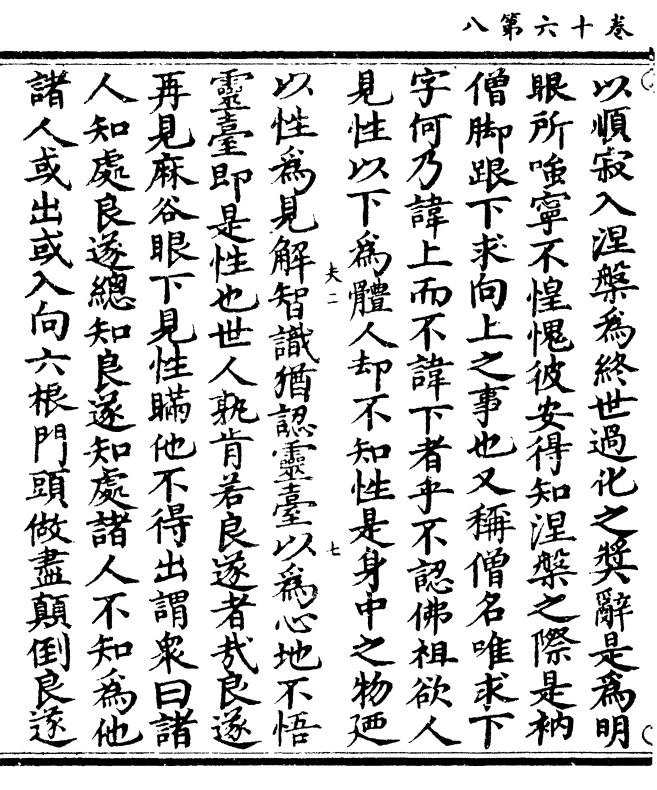 卷十六第八
以順寂入涅槃爲終世過化之獎辭是爲明
眼所嗤寧不惶愧彼安得知涅槃之際是衲
僧脚跟下求向上之事也又稱僧名唯求下
字何乃諱上而不諱下者乎不認佛祖欲人
見性以下爲體人却不知性是身中之物迺
夫二 七
以性爲見解智識猶認靈臺以爲心地不悟
靈臺即是性也世人孰肯若良遂者哉良遂
再見麻谷眼下見性瞞他不得出謂衆曰諸
人知處良遂總知良遂知處諸人不知爲他
諸人或出或入向六根門頭做盡顛倒良遂